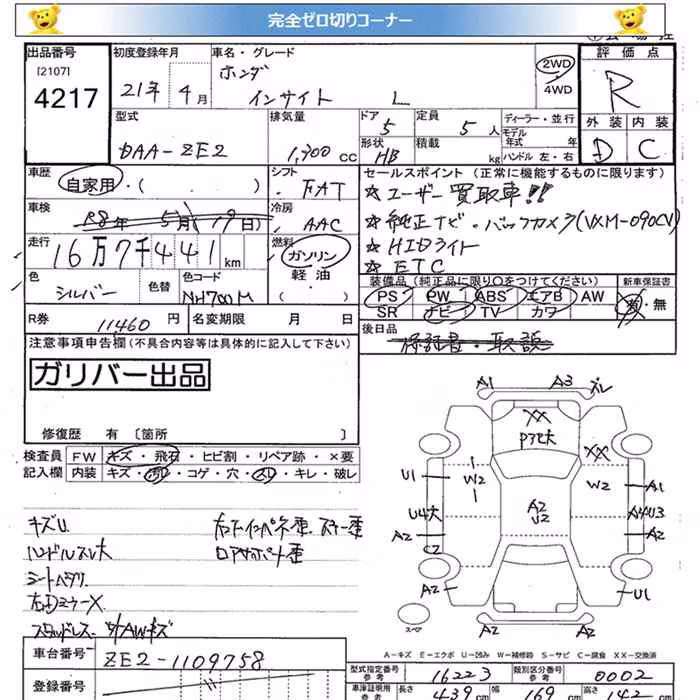 完全ゼロ切りコーナー
出品番号
[2107]
4217
初度登録年月
21年 4月
車名・グレード
ホンダ
インサイト L
2WD
4WD
評価点
R
外装 内装
D C
型式
DAA-ZE2
排気量
1,300 cc
ドア
5
形状
HB
定員
5人
積載
kg
ディーラー・並行
モデル
年式 年
ハンドル 左・右
車歴
自家用・( )
シフト
FAT
車検
R8年 5月 19日)
冷房
AAC
走行
16万7千441km
燃料
ガソリン
軽・油
( )
色
シルバー
色替
色コード
NH700M
R券
11460 円
名変期限 月 日
セールスポイント(正常に機能するものに限ります)
☆ユーザー買取車!!
☆純正ナビ・バックカメラ(VXM-090CV)
☆HIDライト
☆ETC
装備品(純正品に限り○をつけてください)
PS PW ABS エアB AW
SR ナビ TV カワ
新車保証書
有・無
後日品
保証書・取説
注意事項申告欄(不具合内容等は具体的に記入して下さい)
ガリバー出品
修復歴 有〔箇所 〕
検査員
記入欄
FW キズ・飛石・ヒビ割・リペア跡・×要
内装 キズ・汚れ・コゲ・穴・スレ・キレ・破レ
キズU.
ハンドルスレ大
シートヘタリ
右Dミラー×
スタッドレス
AWキズ
ロアサポート歪
A1 A3 ズレ
XX
Pアセ大
XX
U1
W2
W2
A1
U4大
A2
U2
A2
C2
A2
A2
U1
スペア
A2 A2
A-キズ E-エクボ U-凹み W-補修跡 S-サビ C-腐食 XX-交換済
車台番号
ZE2-1109758
登録番号
型式指定番号
参考
16223
類別区分番号
参考
0002
車庫証明用
参考
長さ
439 cm
幅
169 cm
高さ
142 cm